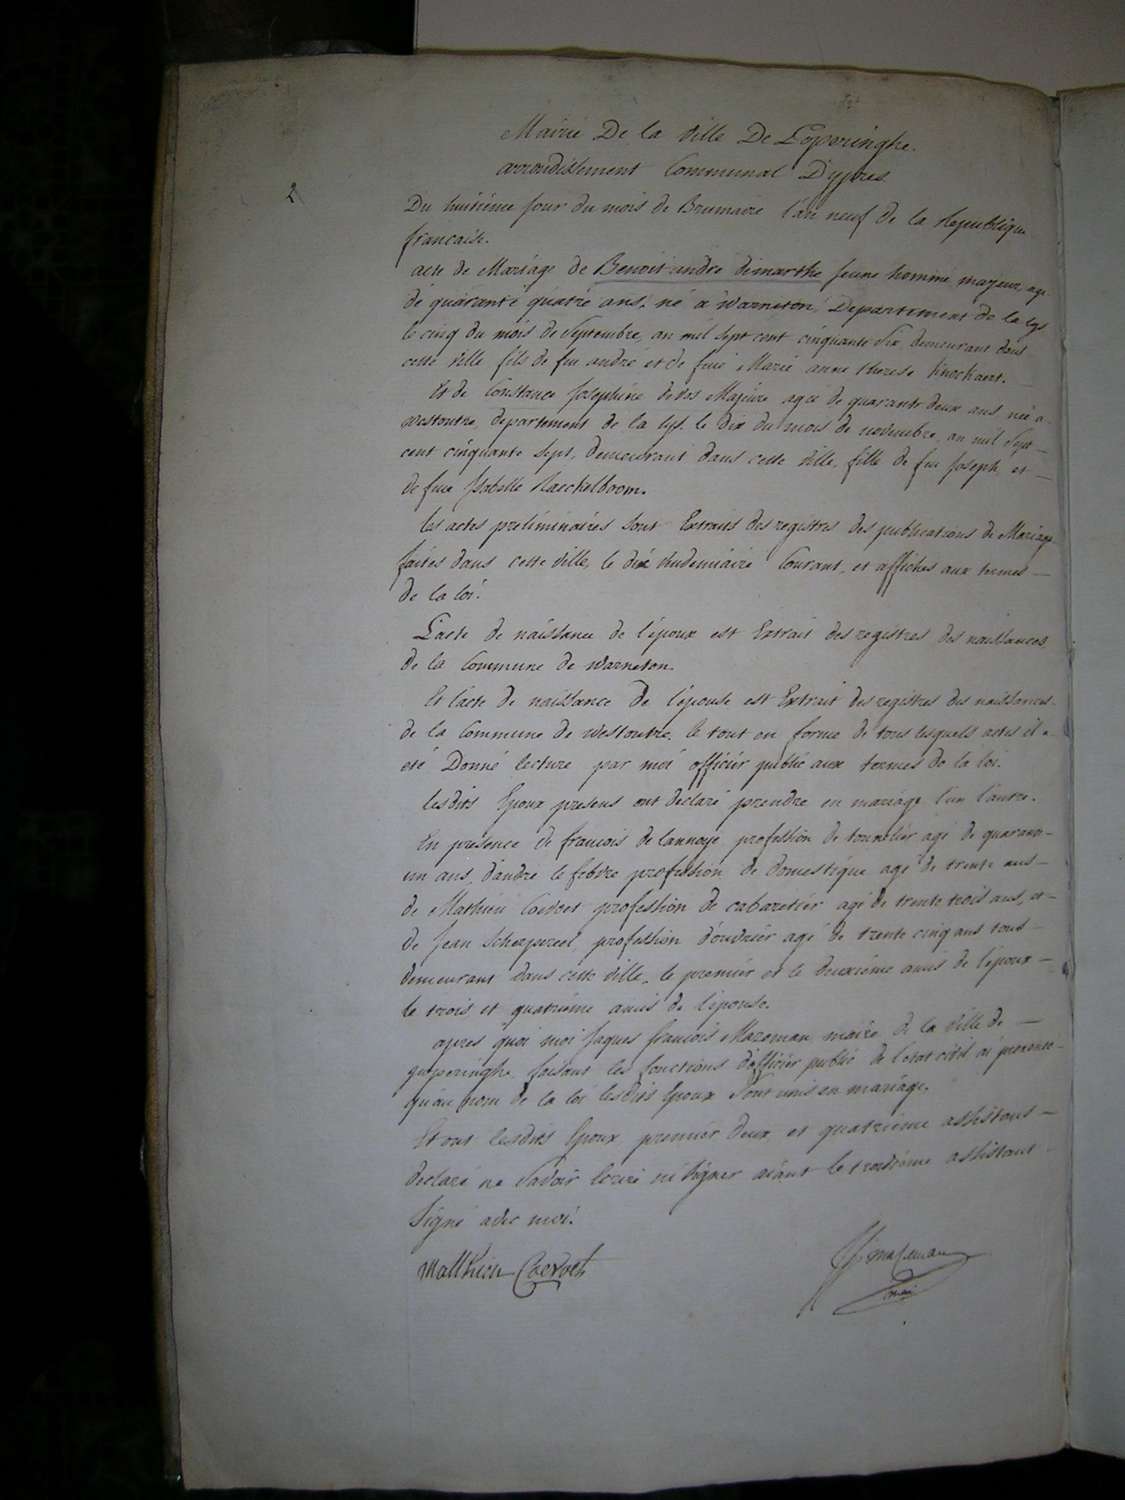 Mairie De la Ville De Poperinghe.
arrondissement Communal D'ypres
2
Du huitieme jour du mois de Brumaire l'an neuf de la Republique
francaise.
acte de Mariage de Benoit andré dimarthe jeune homme majeur, agé
de quarante quatre ans, né a Warneton, Departement de la lys
le cinq du mois de Septembre, an mil sept cent cinquante six demeurant dans
cette ville fils de feu andré et de feue Marie anne therese knockaert.
Et de Constance Josephine devos Majeure agée de quarante deux ans née a
Westoutre, departement de la lys. le dix du mois de novembre, an mil sept
cent cinquante sept, demeurant dans cette ville, fille de feu Joseph, et
de feue Isabelle Haeckelboom.
les actes preliminaires sont Extraits des registres des publications de Mariage
faites dans cette ville, le dix vendemiaire Courant, et affichés aux termes
de la loi.
L'acte de naissance de l'époux est Extrait des registres des naissances
de la Commune de warneton.
Et l'acte de naissance de l'épouse est Extrait des registres des naissances
de la Commune de Westoutre. le tout en forme de tous lesquels actes il a
été Donné lecture par moi officier public aux termes de la loi.
lesdits Epoux presens ont declaré prendre en mariage l'un l'autre.
En presence de francois de lannoye profession de tournelier agé de quarante
un ans, d'andré le febvre profession de domestique agé de trente ans
de Mathieu Coevoet profession de cabaretier agé de trente trois ans, et
de Jean Scherpereel profession d'ouvrier agé de trente cinq ans tous
demeurant dans cette ville. le premier et le deuxième amis de l'époux
le trois et quatrième amis de l'épouse.
apres quoi moi Jaques francois Mazeman maire de la ville de
poperinghe faisant les fonctions d'officier public de l'etat civil ai prononcé
qu'au nom de la loi lesdits Epoux sont unis en mariage.
Et ont lesdits Epoux premier deux, et quatrieme assistans
declaré ne savoir lecrire ni signer aiant le troisième assistant
signé avec moi.
Matthieu Coevoet
mazeman
maire